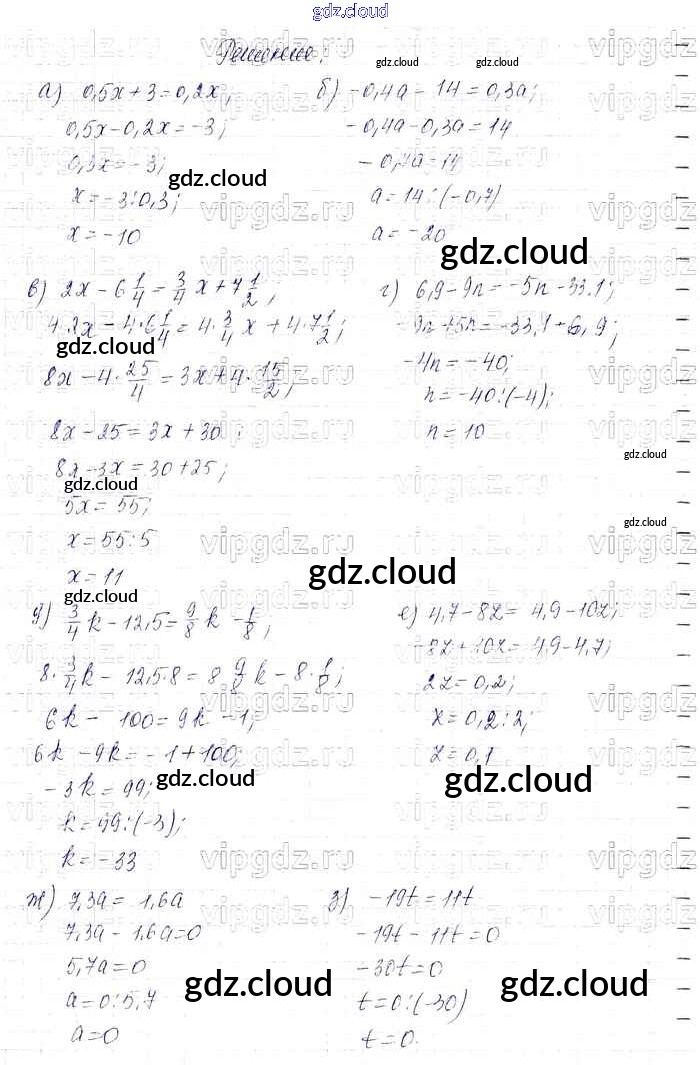 gdz.cloud
Решение:
а) 0,5x+3=0,2x;
0,5x-0,2x=-3;
0,3x=-3;
x=-3:0,3;
x=-10
б) -0,4a-14=0,3a;
-0,4a-0,3a=14
-0,7a=14
a=14:(-0,7)
a=-20
в) 2x-6 1/4=3/4 x+7 1/2;
4·2x-4·6 1/4=4·3/4 x+4·7 1/2;
8x-4·25/4=3x+4·15/2;
8x-25=3x+30;
8x-3x=30+25;
5x=55;
x=55:5
x=11
г) 6,9-9n=-5n-33,1;
-9n+5n=-33,1-6,9;
-4n=-40;
n=-40:(-4);
n=10
д) 3/4 k-12,5=9/8 k-1/8;
8·3/4 k-12,5·8=8 9/8 k-8·1/8;
6k-100=9k-1;
6k-9k=-1+100;
-3k=99;
k=99:(-3);
k=-33
е) 4,7-8z=4,9-10z;
-8z+10z=4,9-4,7;
2z=0,2;
z=0,2:2;
z=0,1
ж) 7,3a=1,6a
7,3a-1,6a=0
5,7a=0
a=0:5,7
a=0
з) -19t=11t
-19t-11t=0
-30t=0
t=0:(-30)
t=0
gdz.cloud
gdz.cloud
gdz.cloud
gdz.cloud
gdz.cloud
gdz.cloud
gdz.cloud
gdz.cloud
gdz.cloud
gdz.cloud
gdz.cloud
gdz.cloud
gdz.cloud
gdz.cloud
vipgdz.ru